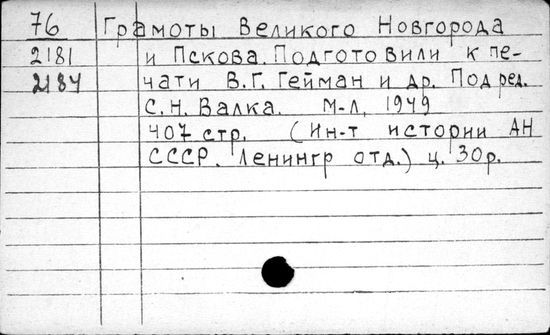 76 Грамоты Великого Новгорода
2181 и Пскова. Подготовили к пе-
2184 чати В.Г. Гейман и др. Под ред.
С.Н. Валка. М-Л, 1949
407 стр. (Ин-т истории АН
СССР. Ленингр отд.) ц. 30р.